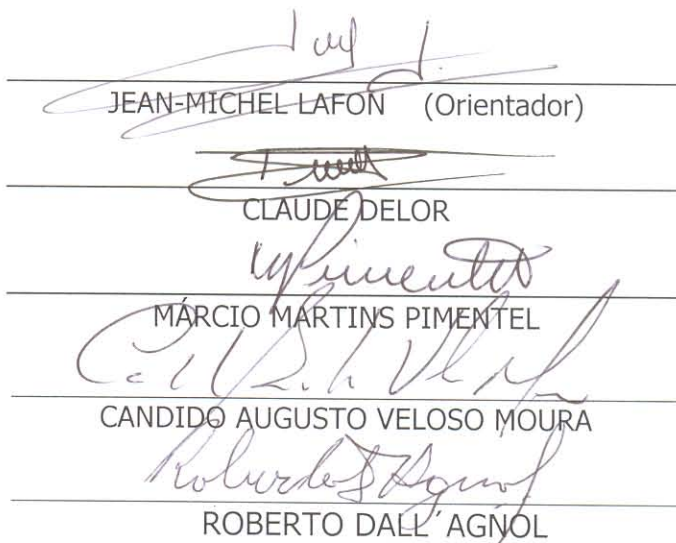 JEAN-MICHEL LAFON (Orientador)
CLAUDE DELOR
Pimentel
MÁRCIO MARTINS PIMENTEL
CANDIDO AUGUSTO VELOSO MOURA
Roberto D'Agnol
ROBERTO DALL´AGNOL